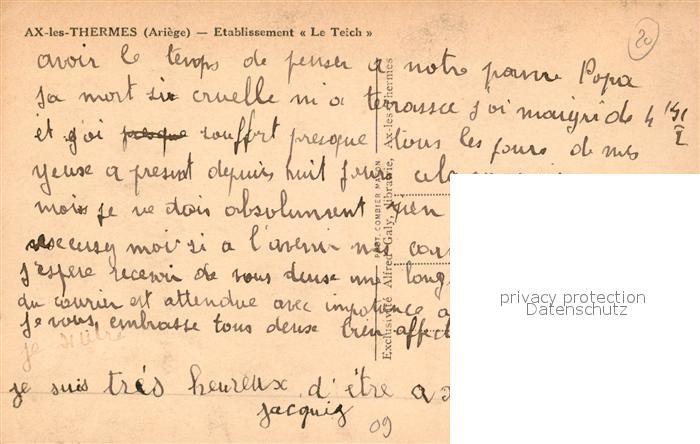 AX-les-THERMES (Ariège) — Etablissement « Le Teich »
20
avoir le temps de penser a notre pauvre Popa
sa mort si cruelle m'a terrassée j'oi maigri de 4
et j'oi presque souffert presque tous les jours de mes
yeuse a present depuis huit jours cela
mois je ne dois absolument rien
esceusez moi si a l'avenir mes
j'espère recevoir de vous deuse une long
du courrier est attendue avec impatience a
je vous embrasse tous deuse bien affect
je suis très heureux d'être a
Jacquie
09
PHOT. COMBIER MACON
Exclusivité Alfred Galy, librairie, Ax-les-Thermes
privacy protection
Datenschutz